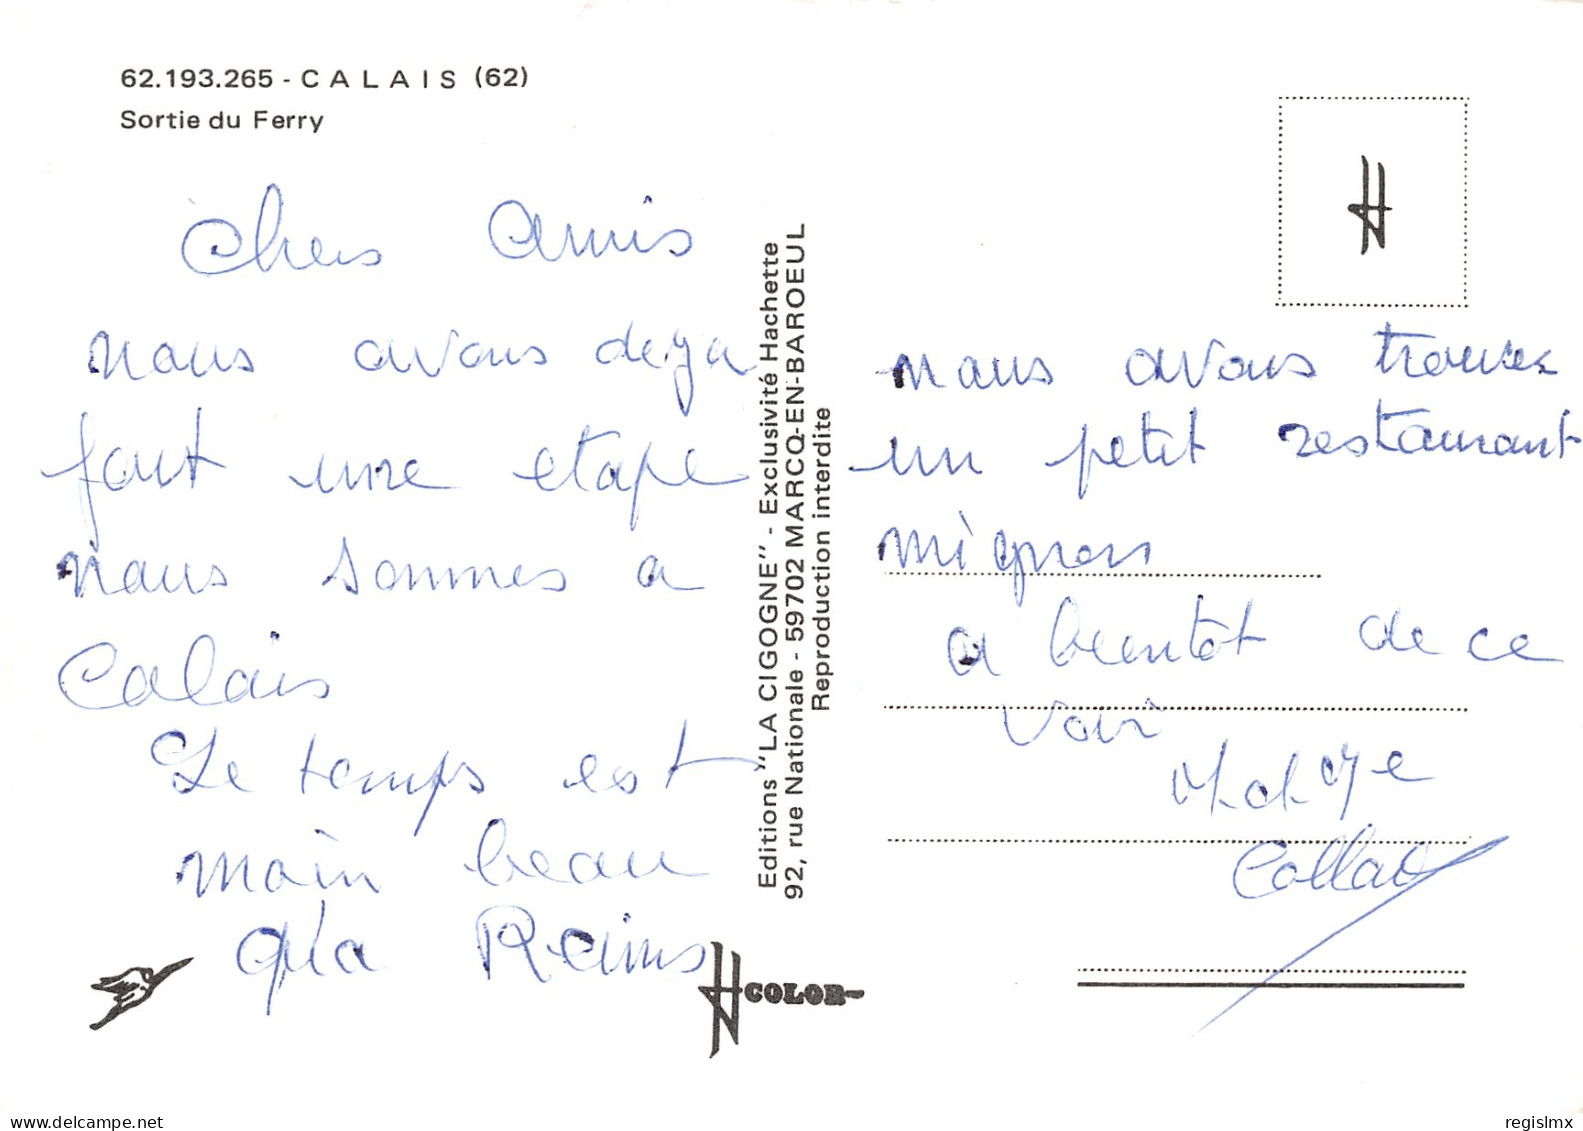 62.193.265 - CALAIS (62)
Sortie du Ferry
Chers Amis
nous avons deja
fait une etape
nous sommes a
Calais
Le temps est
moin beau
qu'a Reims
Editions "LA CIGOGNE" - Exclusivité Hachette
92, rue Nationale - 59702 MARCQ-EN-BAROEUL
Reproduction interdite
COLOR
nous avons trouvez
un petit restaurant
mignon
a bientôt de ce
voir
delcampe.net
regislmx